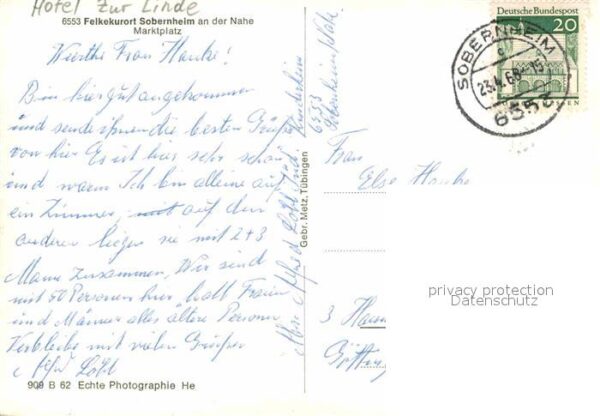 Hotel zur Linde
6553 Felkekurort Sobernheim an der Nahe
Marktplatz
Werthe Frau Hanke!
Bin hier gut angekommen
und sende ihnen die besten Grüße
von hier Es ist hier sehr schön
und warm Ich bin alleine auf
ein Zimmer, auf den
anderen liegen sie mit 2+3
Mann zusammen, Wir sind
mit 50 Personen hier halb Frauen
und Männer alles ältere Personen
Verbleibe mit vielen Grüßen
6553
Sobernheim/Nahe
Gebr. Metz, Tübingen
909 B 62 Echte Photographie He
Deutsche Bundespost
20
SOBERNHEIM
c
23.4.69-15
6553
Frau
Else Hanke
3
privacy protection
Datenschutz